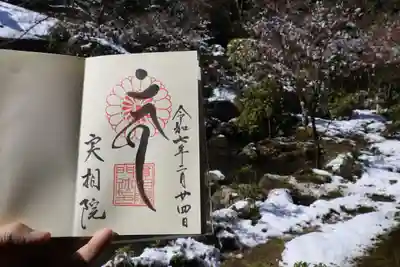 令和七年二月廿四日
実相院